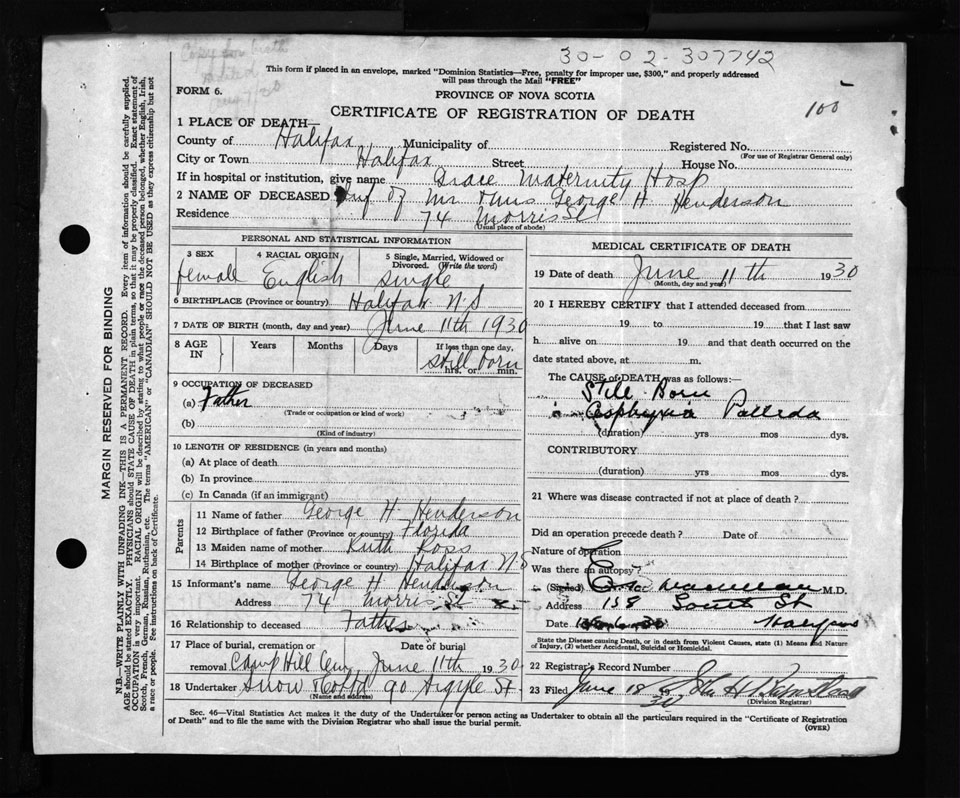 30-02-307742
Copy for birth
This form if placed in an envelope, marked "Dominion Statistics—Free, penalty for improper use, $300," and properly addressed
will pass through the Mail "FREE"
FORM 6.
PROVINCE OF NOVA SCOTIA
100
CERTIFICATE OF REGISTRATION OF DEATH
1 PLACE OF DEATH—
County of Halifax Municipality of Registered No.
(For use of Registrar General only)
City or Town Halifax Street House No.
If in hospital or institution, give name Grace Maternity Hosp
2 NAME OF DECEASED Inf of Mr & Mrs George H Henderson
Residence 74 Morris St
(Usual place of abode)
PERSONAL AND STATISTICAL INFORMATION
3 SEX 4 RACIAL ORIGIN 5 Single, Married, Widowed or
Divorced. (Write the word)
female English single
6 BIRTHPLACE (Province or country) Halifax N.S
7 DATE OF BIRTH (month, day and year) June 11th 1930
8 AGE IN Years Months Days If less than one day,
still born
hrs. or min.
9 OCCUPATION OF DECEASED
(a) Father
(Trade or occupation or kind of work)
(b)
(Kind of industry)
10 LENGTH OF RESIDENCE (in years and months)
(a) At place of death
(b) In province
(c) In Canada (if an immigrant)
Parents
11 Name of father George H Henderson
12 Birthplace of father (Province or country) Florida
13 Maiden name of mother Ruth Ross
14 Birthplace of mother (Province or country) Halifax N.S
15 Informant's name George H Henderson
Address 74 Morris St
16 Relationship to deceased Father
17 Place of burial, cremation or Date of burial
removal Camp Hill Cem June 11th 1930
18 Undertaker Snow & Co Ltd 90 Argyle St
(Name and address)
MEDICAL CERTIFICATE OF DEATH
19 Date of death June 11th 1930
(Month, day and year)
20 I HEREBY CERTIFY that I attended deceased from
19 to 19 that I last saw
h alive on 19 and that death occurred on the
date stated above, at m.
The CAUSE of DEATH was as follows:
Still Born
Asphyxia Pallida
(duration) yrs mos dys.
CONTRIBUTORY
(duration) yrs mos dys.
21 Where was disease contracted if not at place of death?
Did an operation precede death? Date of
Nature of operation
Was there an autopsy?
(Signed) M.D.
Address 158 South St
Date Halifax
State the Disease causing Death, or in death from Violent Causes, state (1) Means and Nature
of Injury, (2) whether Accidental, Suicidal or Homicidal.
22 Registrar's Record Number
23 Filed June 18 1930 John H
(Division Registrar)
Sec. 46—Vital Statistics Act makes it the duty of the Undertaker or person acting as Undertaker to obtain all the particulars required in the "Certificate of Registration
of Death" and to file the same with the Division Registrar who shall issue the burial permit.
(OVER)
MARGIN RESERVED FOR BINDING
N.B.—WRITE PLAINLY WITH UNFADING INK—THIS IS A PERMANENT RECORD. Every item of information should be carefully supplied.
AGE should be stated EXACTLY. PHYSICIANS should STATE CAUSE OF DEATH in plain terms, so that it may be properly classified. Exact statement of
OCCUPATION is very important. RACIAL ORIGIN will be described by stating to what people or race the deceased person belonged, whether English, Irish,
Scotch, French, German, Russian, Ruthenian, etc. The terms "AMERICAN" or "CANADIAN" SHOULD NOT BE USED as they express citizenship but not
a race or people. See instructions on back of Certificate.